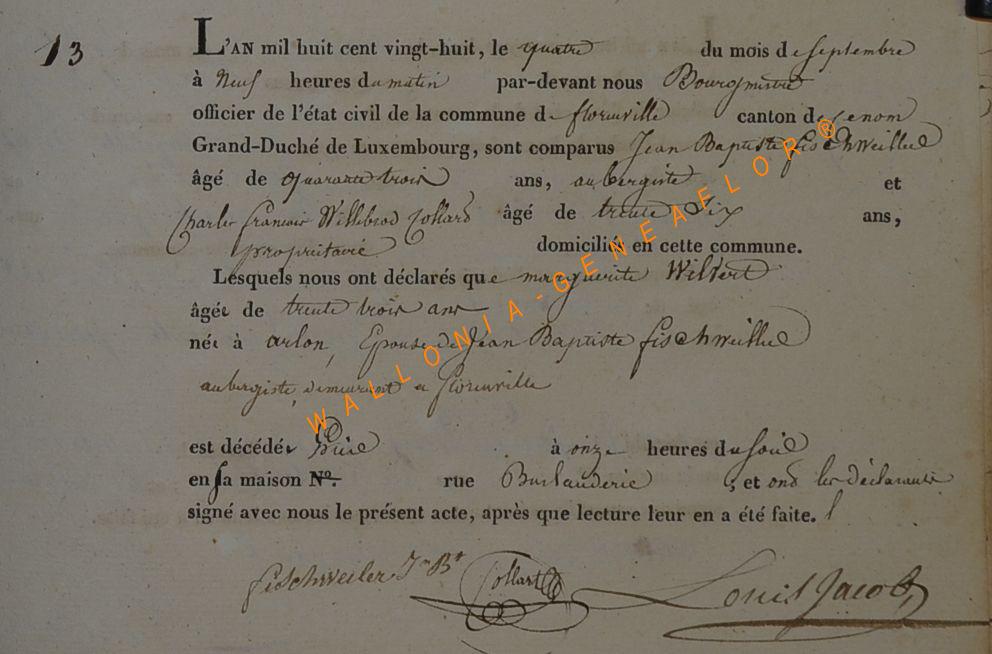 13
L'AN mil huit cent vingt-huit, le quatre du mois de Septembre
à Neuf heures du matin par-devant nous Bourgmestre
officier de l'état civil de la commune de florenville canton d'Etenom
Grand-Duché de Luxembourg, sont comparus Jean Baptiste fischweiller
âgé de quarante trois ans, aubergiste et
Charles francois Willebrod Collard âgé de trente Six ans,
propriétaire domiciliés en cette commune.
Lesquels nous ont déclarés que marguerite Wilvert
âgée de trente trois ans
née à arlon, Epouse de Jean Baptiste fischweiller
aubergiste, demeurant a florenville
est décédée hier à onze heures du soir
en sa maison Nº. rue , et ont les déclarants
signé avec nous le présent acte, après que lecture leur en a été faite.
fischweiler Jn Bt Collart Louis Jacob
WALLONIA-GENEAFLOR®